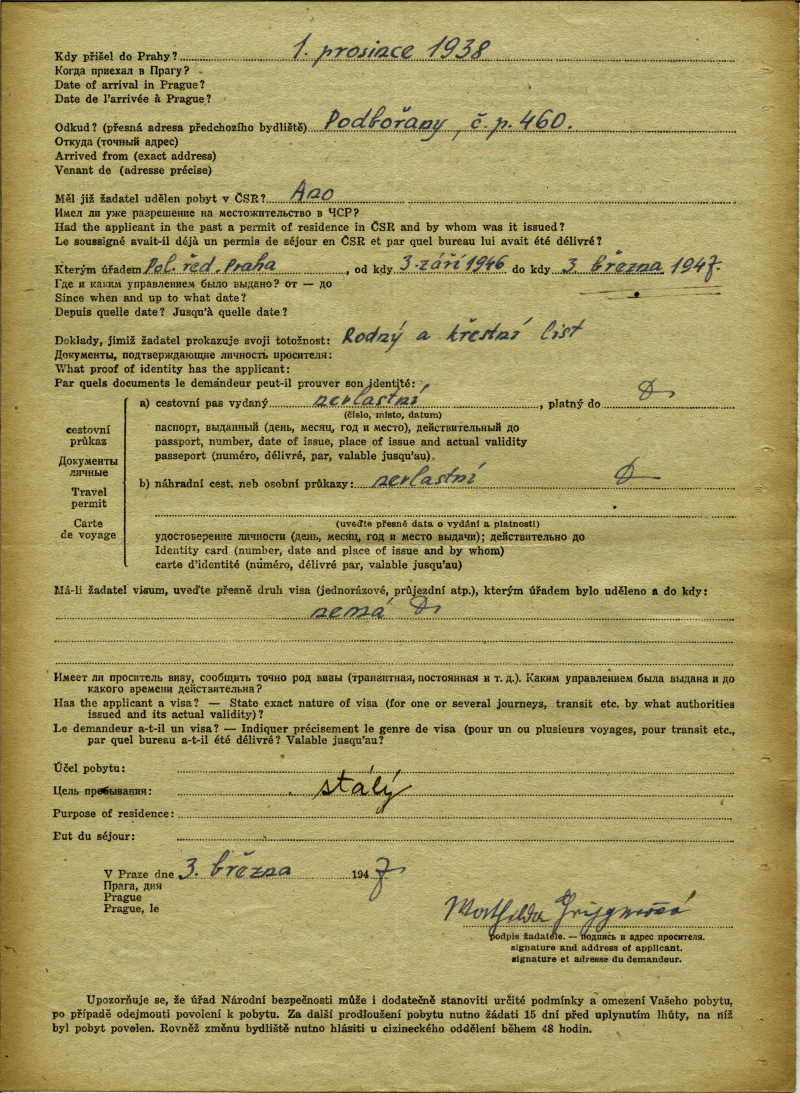 Kdy přišel do Prahy? 1. prosince 1938
Когда приехал в Прагу?
Date of arrival in Prague?
Date de l'arrivée à Prague?
Odkud? (přesná adresa předchozího bydliště) Podbořany, č. p. 460.
Откуда (точный адрес)
Arrived from (exact address)
Venant de (adresse précise)
Měl již žadatel udělen pobyt v ČSR? Ano
Имел ли уже разрешение на местожительство в ЧСР?
Had the applicant in the past a permit of residence in ČSR and by whom was it issued?
Le soussigné avait-il déjà un permis de séjour en ČSR et par quel bureau lui avait été délivré?
Kterým úřadem Pol. řed. Praha, od kdy 3. září 1946 do kdy 3. března 1947.
Где и каким управлением было выдано? от — до
Since when and up to what date?
Depuis quelle date? Jusqu'à quelle date?
Doklady, jimiž žadatel prokazuje svoji totožnost: Rodný a křestní list
Документы, подтверждающие личность просителя:
What proof of identity has the applicant:
Par quels documents le demandeur peut-il prouver son identité:
cestovní
průkaz
Документы
личные
Travel
permit
Carte
de voyage
a) cestovní pas vydaný nevlastní, platný do
(číslo, místo, datum)
паспорт, выданный (день, месяц, год и место), действительный до
passport, number, date of issue, place of issue and actual validity
passeport (numéro, délivré, par, valable jusqu'au)
b) náhradní cest. neb osobní průkazy: nevlastní
(uveďte přesně data o vydání a platnosti)
удостоверение личности (день, месяц, год и место выдачи); действительно до
Identity card (number, date and place of issue and by whom)
carte d'identité (numéro, délivré par, valable jusqu'au)
Má-li žadatel visum, uveďte přesně druh visa (jednorázové, průjezdní atp.), kterým úřadem bylo uděleno a do kdy:
nemá
Имеет ли проситель визу, сообщить точно род визы (транзитная, постоянная и т. д.). Каким управлением была выдана и до
какого времени действительна?
Has the applicant a visa? — State exact nature of visa (for one or several journeys, transit etc. by what authorities
issued and its actual validity)?
Le demandeur a-t-il un visa? — Indiquer précisement le genre de visa (pour un ou plusieurs voyages, pour transit etc.,
par quel bureau a-t-il été délivré? Valable jusqu'au?
Účel pobytu:
Цель пребывания: stálý
Purpose of residence:
But du séjour:
V Praze dne 3. března 1947
Прага, дня
Prague
Prague, le
podpis žadatele. — подпись и адрес просителя.
signature and address of applicant.
signature et adresse du demandeur.
Upozorňuje se, že úřad Národní bezpečnosti může i dodatečně stanoviti určité podmínky a omezení Vašeho pobytu,
po případě odejmouti povolení k pobytu. Za další prodloužení pobytu nutno žádati 15 dní před uplynutím lhůty, na níž
byl pobyt povolen. Rovněž změnu bydliště nutno hlásiti u cizineckého oddělení během 48 hodin.